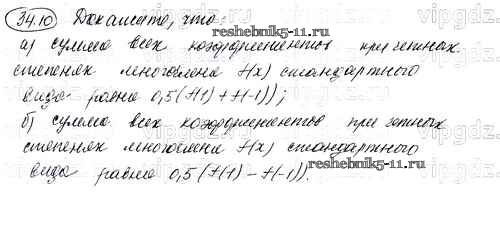 34.10 Доказать, что:
reshebnik5-11.ru
а) сумма всех коэффициентов при четных
степенях многочлена f(x) стандартного
вида равна 0,5(f(1) + f(-1));
б) сумма всех коэффициентов при четных
степенях многочлена f(x) стандартного
reshebnik5-11.ru
вида равна 0,5(f(1) - f(-1)).
vipgdz